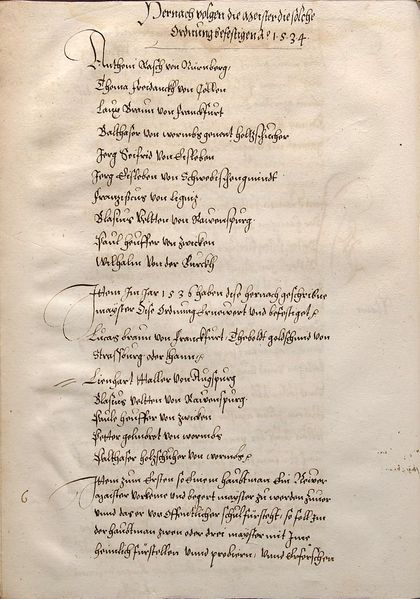 Hernach volgen die Meister die solche
Ordnung befestigen Aº 1534.
Anthoni Rasch von Nürnberg.
Thoma Freidanckh von Collen
Laux Braun von Franckfurt
Balthaser von wormbs genent holtzschucher
Jerg Seifrid von Eisleben
Jerg Eisleben von Schwebischengmindt
Franziscus von Lignitz
Blasius Veltten von Rawenspurg.
Paul heuffer von zwicken
Wilhalm Von der Burckh
Ittem Im Jar 1536 haben dise hernach geschribne
mayster Dise Ordnung Ernewert und befestiget
Lucas braun von Franckfurt, Theboldt goldschmid von
Strassburg oder thann
Lienhart Haller von Augspurg
Blasius veltten von Rawenspurg
Paule heuffer von zwicken
Petter von wormbs
Balthaser holzschuher von wormbs
6 Ittem zum Ersten so Einem haubtman Ein Newer
Maister vorkeme und begert mayster zu werden zuvor
unnd das er vor Offentlicher schul fürsteht, so soll Im
der haubtman zwen oder drei mayster mit Ime
heimlich fürstellen unnd probiern, unnd Erforschen